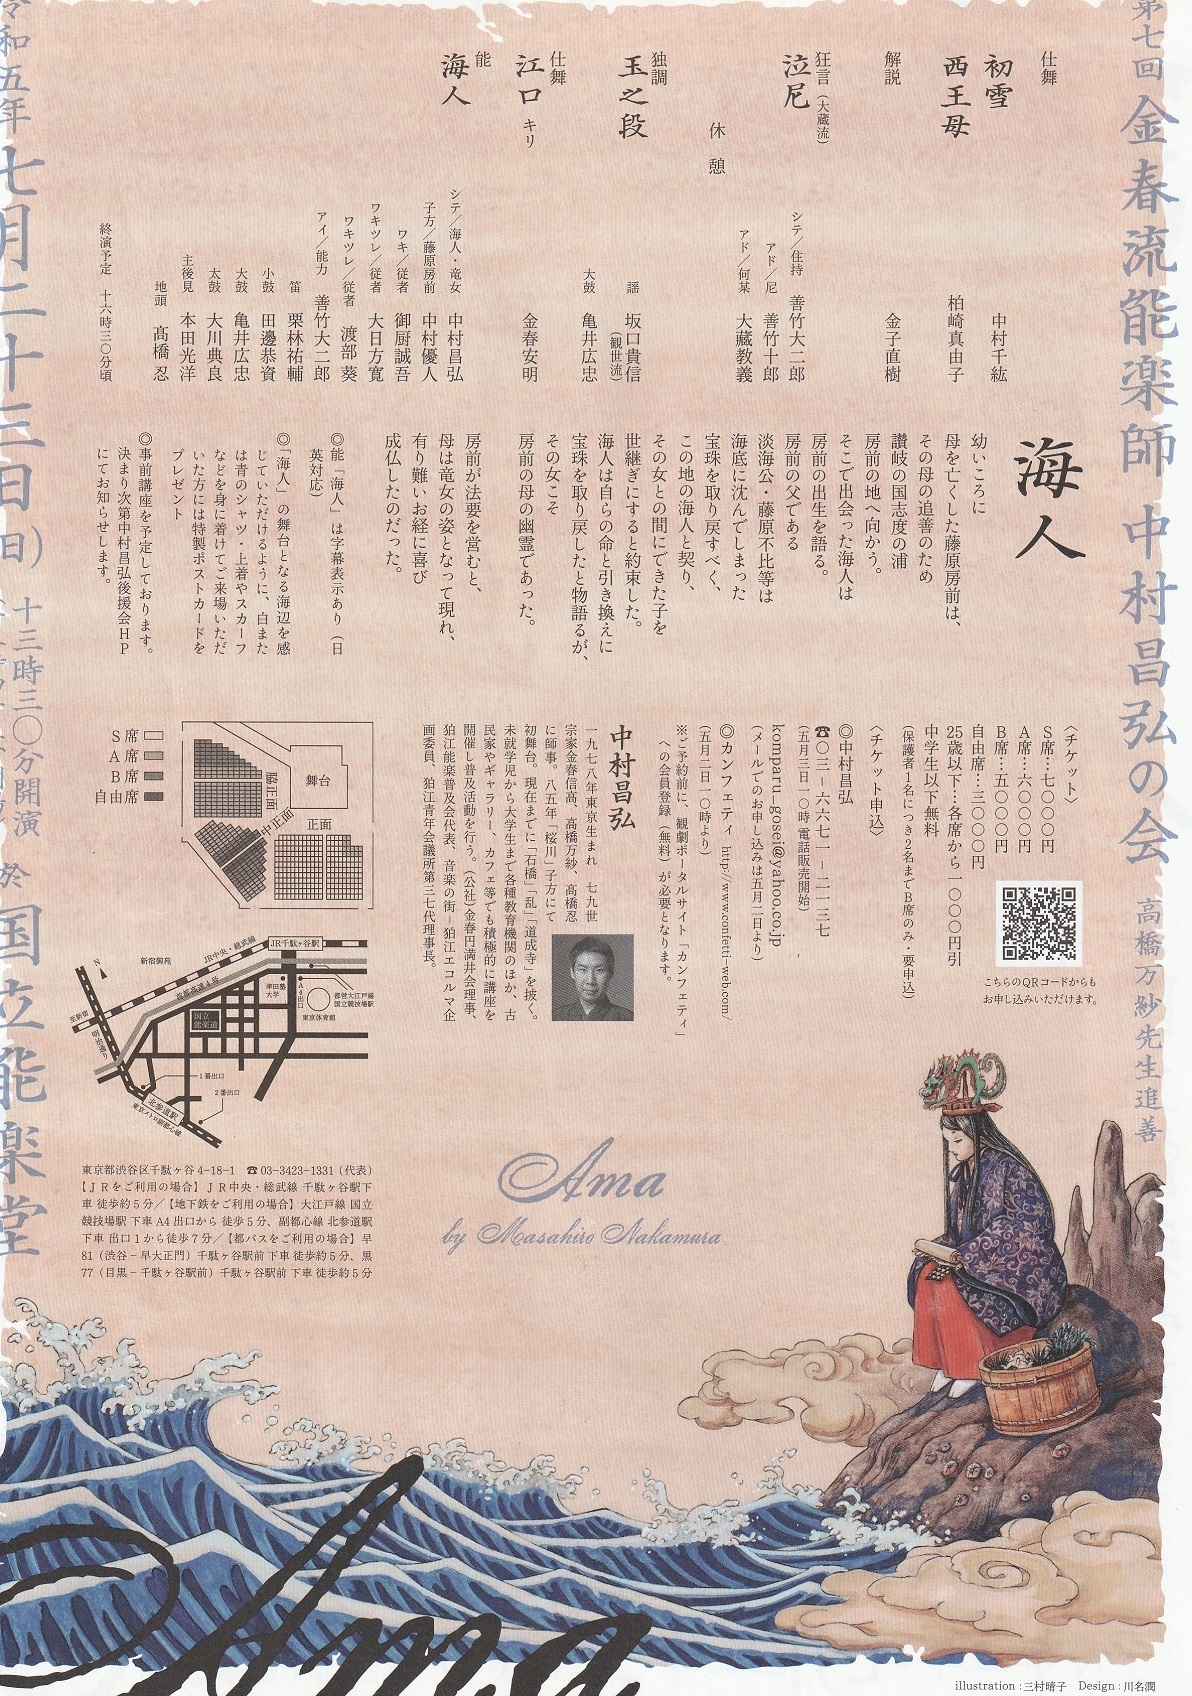 第七回 金春流能楽師 中村昌弘の会 高橋万紗先生追善
仕舞
初雪 中村千紘
西王母 柏崎真由子
解説 金子直樹
狂言(大蔵流)
泣尼 シテ/住持 善竹大二郎
アド/尼 善竹十郎
アド/何某 大藏教義
休憩
独調
玉之段 謡 坂口貴信
(観世流)
大鼓 亀井広忠
仕舞
江口 キリ 金春安明
能
海人 シテ/海人・竜女 中村昌弘
子方/藤原房前 中村優人
ワキ/従者 御厨誠吾
ワキツレ/従者 大日方寛
ワキツレ/従者 渡部葵
アイ/能力 善竹大二郎
笛 栗林祐輔
小鼓 田邊恭資
大鼓 亀井広忠
太鼓 大川典良
主後見 本田光洋
地頭 髙橋忍
終演予定 十六時三〇分頃
海人
幼いころに
母を亡くした藤原房前は、
その母の追善のため
讃岐の国志度の浦
房前の地へ向かう。
そこで出会った海人は
房前の出生を語る。
房前の父である
淡海公・藤原不比等は
海底に沈んでしまった
宝珠を取り戻すべく、
この地の海人と契り、
その女との間にできた子を
世継ぎにすると約束した。
海人は自らの命と引き換えに
宝珠を取り戻したと物語るが、
その女こそ
房前の母の幽霊であった。
房前が法要を営むと、
母は竜女の姿となって現れ、
有り難いお経に喜び
成仏したのだった。
◎能「海人」は字幕表示あり(日
英対応)
◎「海人」の舞台となる海辺を感
じていただけるように、白また
は青のシャツ・上着やスカーフ
などを身に着けてご来場いただ
いた方には特製ポストカードを
プレゼント
◎事前講座を予定しております。
決まり次第中村昌弘後援会HP
にてお知らせします。
〈チケット〉
S席…七〇〇〇円
A席…六〇〇〇円
B席…五〇〇〇円
自由席…三〇〇〇円
25歳以下…各席から一〇〇〇円引
中学生以下無料
(保護者1名につき2名までB席のみ・要申込)
こちらのQRコードからも
お申し込みいただけます。
〈チケット申込〉
◎中村昌弘
☎〇三-六六七一-二一三七
(五月三日一〇時 電話販売開始)
komparu_gosei@yahoo.co.jp
(メールでのお申し込みは五月二日より)
◎カンフェティ http://www.confetti-web.com/
(五月二日一〇時より)
※ご予約前に、観劇ポータルサイト「カンフェティ」
への会員登録(無料)が必要となります。
中村昌弘
一九七八年東京生まれ 七九世
宗家金春信高、高橋万紗、高橋忍
に師事。八五年「桜川」子方にて
初舞台。現在までに「石橋」「乱」「道成寺」を披く。
未就学児から大学生まで各種教育機関のほか、古
民家やギャラリー、カフェ等でも積極的に講座を
開催し普及活動を行う。(公社)金春円満井会理事、
狛江能楽普及会代表、音楽の街-狛江エコルマ企
画委員、狛江青年会議所第三七代理事長。
S席
A席
B席
自由席
舞台
脇正面
中正面
正面
N
新宿御苑
JR中央・総武線
JR千駄ヶ谷駅
首都高速4号
至新宿
明治通り
津田塾
大学
A4出口
都営大江戸線
国立競技場駅
東京体育館
国立
能楽堂
1番出口
2番出口
北参道駅
東京メトロ副都心線
東京都渋谷区千駄ヶ谷4-18-1 ☎03-3423-1331(代表)
【JRをご利用の場合】JR中央・総武線 千駄ヶ谷駅下
車 徒歩約5分/【地下鉄をご利用の場合】大江戸線 国立
競技場駅 下車 A4出口から 徒歩5分、副都心線 北参道駅
下車 出口1から徒歩7分/【都バスをご利用の場合】早
81(渋谷-早大正門)千駄ヶ谷駅前 下車 徒歩約5分、黒
77(目黒-千駄ヶ谷駅前)千駄ヶ谷駅前 下車 徒歩約5分
令和五年七月二十三日(日) 十三時三〇分開演 於 国立能楽堂
Ama
by Masahiro Nakamura
Ama
illustration：三村晴子 Design：川名潤